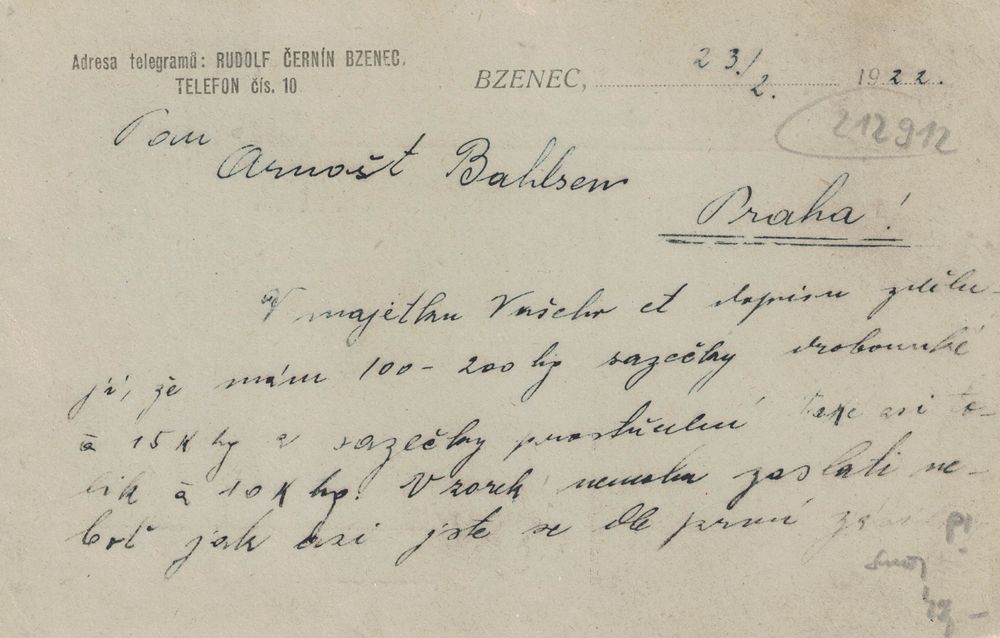 Adresa telegramů: RUDOLF ČERNÍN BZENEC.
TELEFON čís. 10
BZENEC, 23./2. 1922.
212912
Pan
Arnošt Bahlsen
Praha!
V majetku Vašeho ct dopisu zdělu-
ji, že mám 100-200 kg sazečky drobounké
à 15 K kg a sazečky prostřední také asi to-
lik à 10 K kg. Vzorek nemohu zaslati ne-
boť jak asi jste se dle první